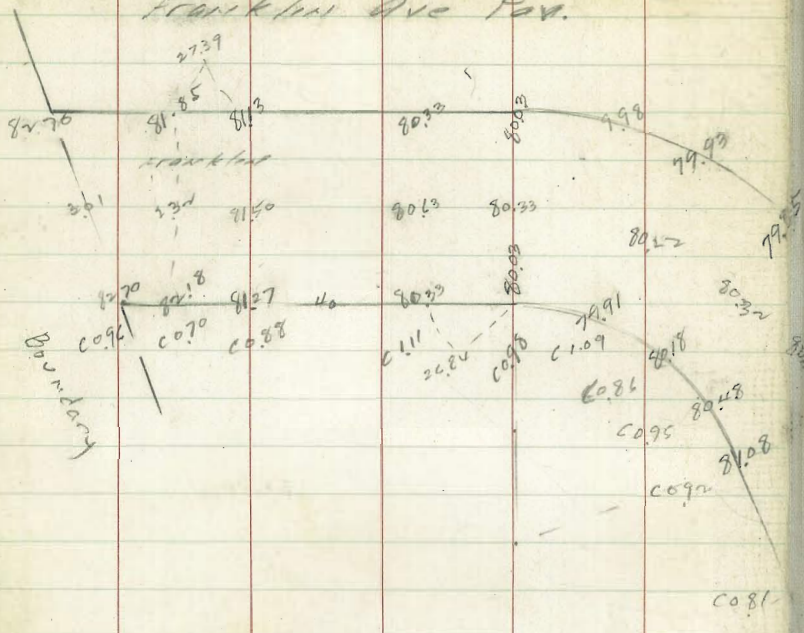 Franklin Ave Pav.
27.39
82.76 81.85 81.13 80.33 80.03 9.98 79.93
Franklin
3.01 2.32 81.50 80.63 80.33 79.85
80.52
82.70 82.18 81.27 40 80.33 80.03 79.91 80.32
Boundary C0.96 C0.70 C0.88 C1.11 26.24 C0.98 C1.09 80.18
C0.86 80.48
C0.95 81.08
C0.92
C0.81